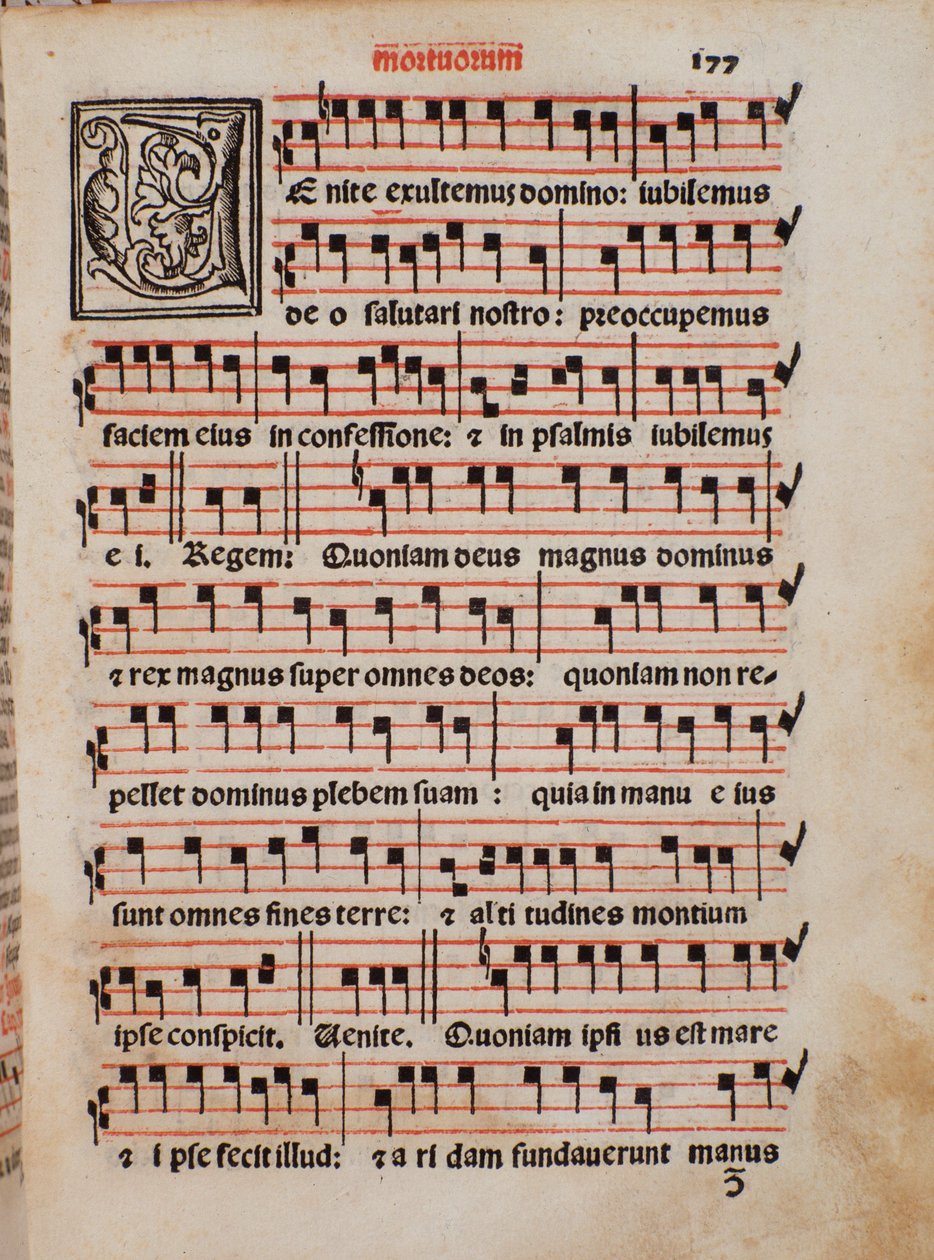 mortuorum 177
VE nite exultemus domino: iubilemus
de o salutari nostro: preoccupemus
faciem eius in confessione: ⁊ in psalmis iubilemus
e i. Regem: Quoniam deus magnus dominus
⁊ rex magnus super omnes deos: quoniam non re-
pellet dominus plebem suam : quia in manu e ius
sunt omnes fines terre: ⁊ al ti tudines montium
ipse conspicit. Uenite. Quoniam ipsi us est mare
⁊ i pse fecit illud: ⁊ a ri dam fundauerunt manus